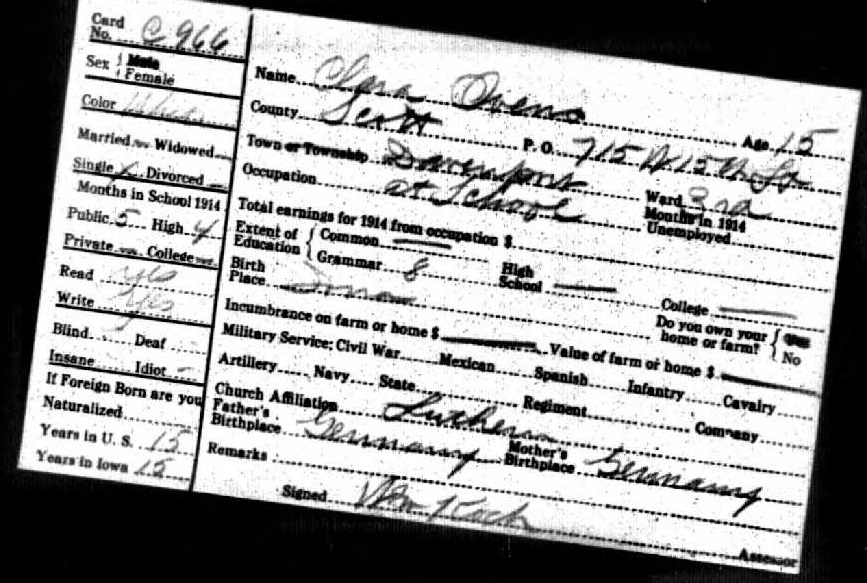 Card No. C 966
Sex { Male
Female
Color White
Married Widowed
Single X Divorced
Months in School 1914
Public 5 High 4
Private College
Read yes
Write yes
Blind Deaf
Insane Idiot
If Foreign Born are you
Naturalized
Years in U. S. 15
Years in Iowa 15
Name Clara Owens Age 15
County Scott P. O. 715 W 15th St
Town or Township Davenport Ward 3rd
Occupation at School Months in 1914 Unemployed
Total earnings for 1914 from occupation $
Extent of Education { Common Grammar 8 High School College
Birth Place Iowa Do you own your home or farm? { No
Incumbrance on farm or home $ Value of farm or home $
Military Service: Civil War Mexican Spanish Infantry Cavalry
Artillery Navy State Regiment Company
Church Affiliation Lutheran
Father's Birthplace Germany Mother's Birthplace Germany
Remarks
Signed Wm Koch Assessor